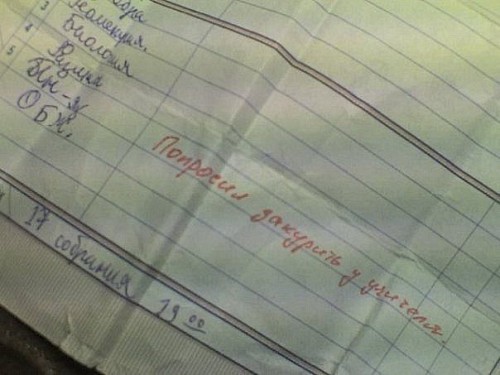 3 Геометрия.
4 Биология
5 Физика
Ин-яз
ОБЖ,
Попросил закурить у учителя.
17 собрания 19 00